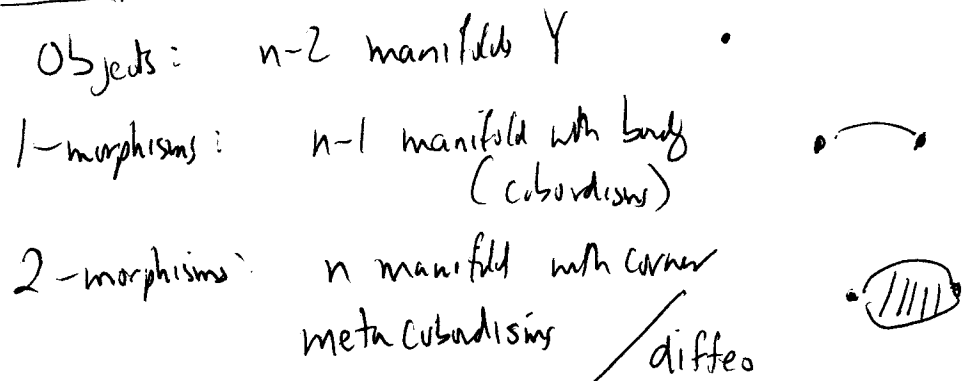 Objects: n-2 manifolds Y
1-morphisms: n-1 manifold with bndy
(cobordisms)
2-morphisms: n manifold with corner
meta cobordisms / diffeo